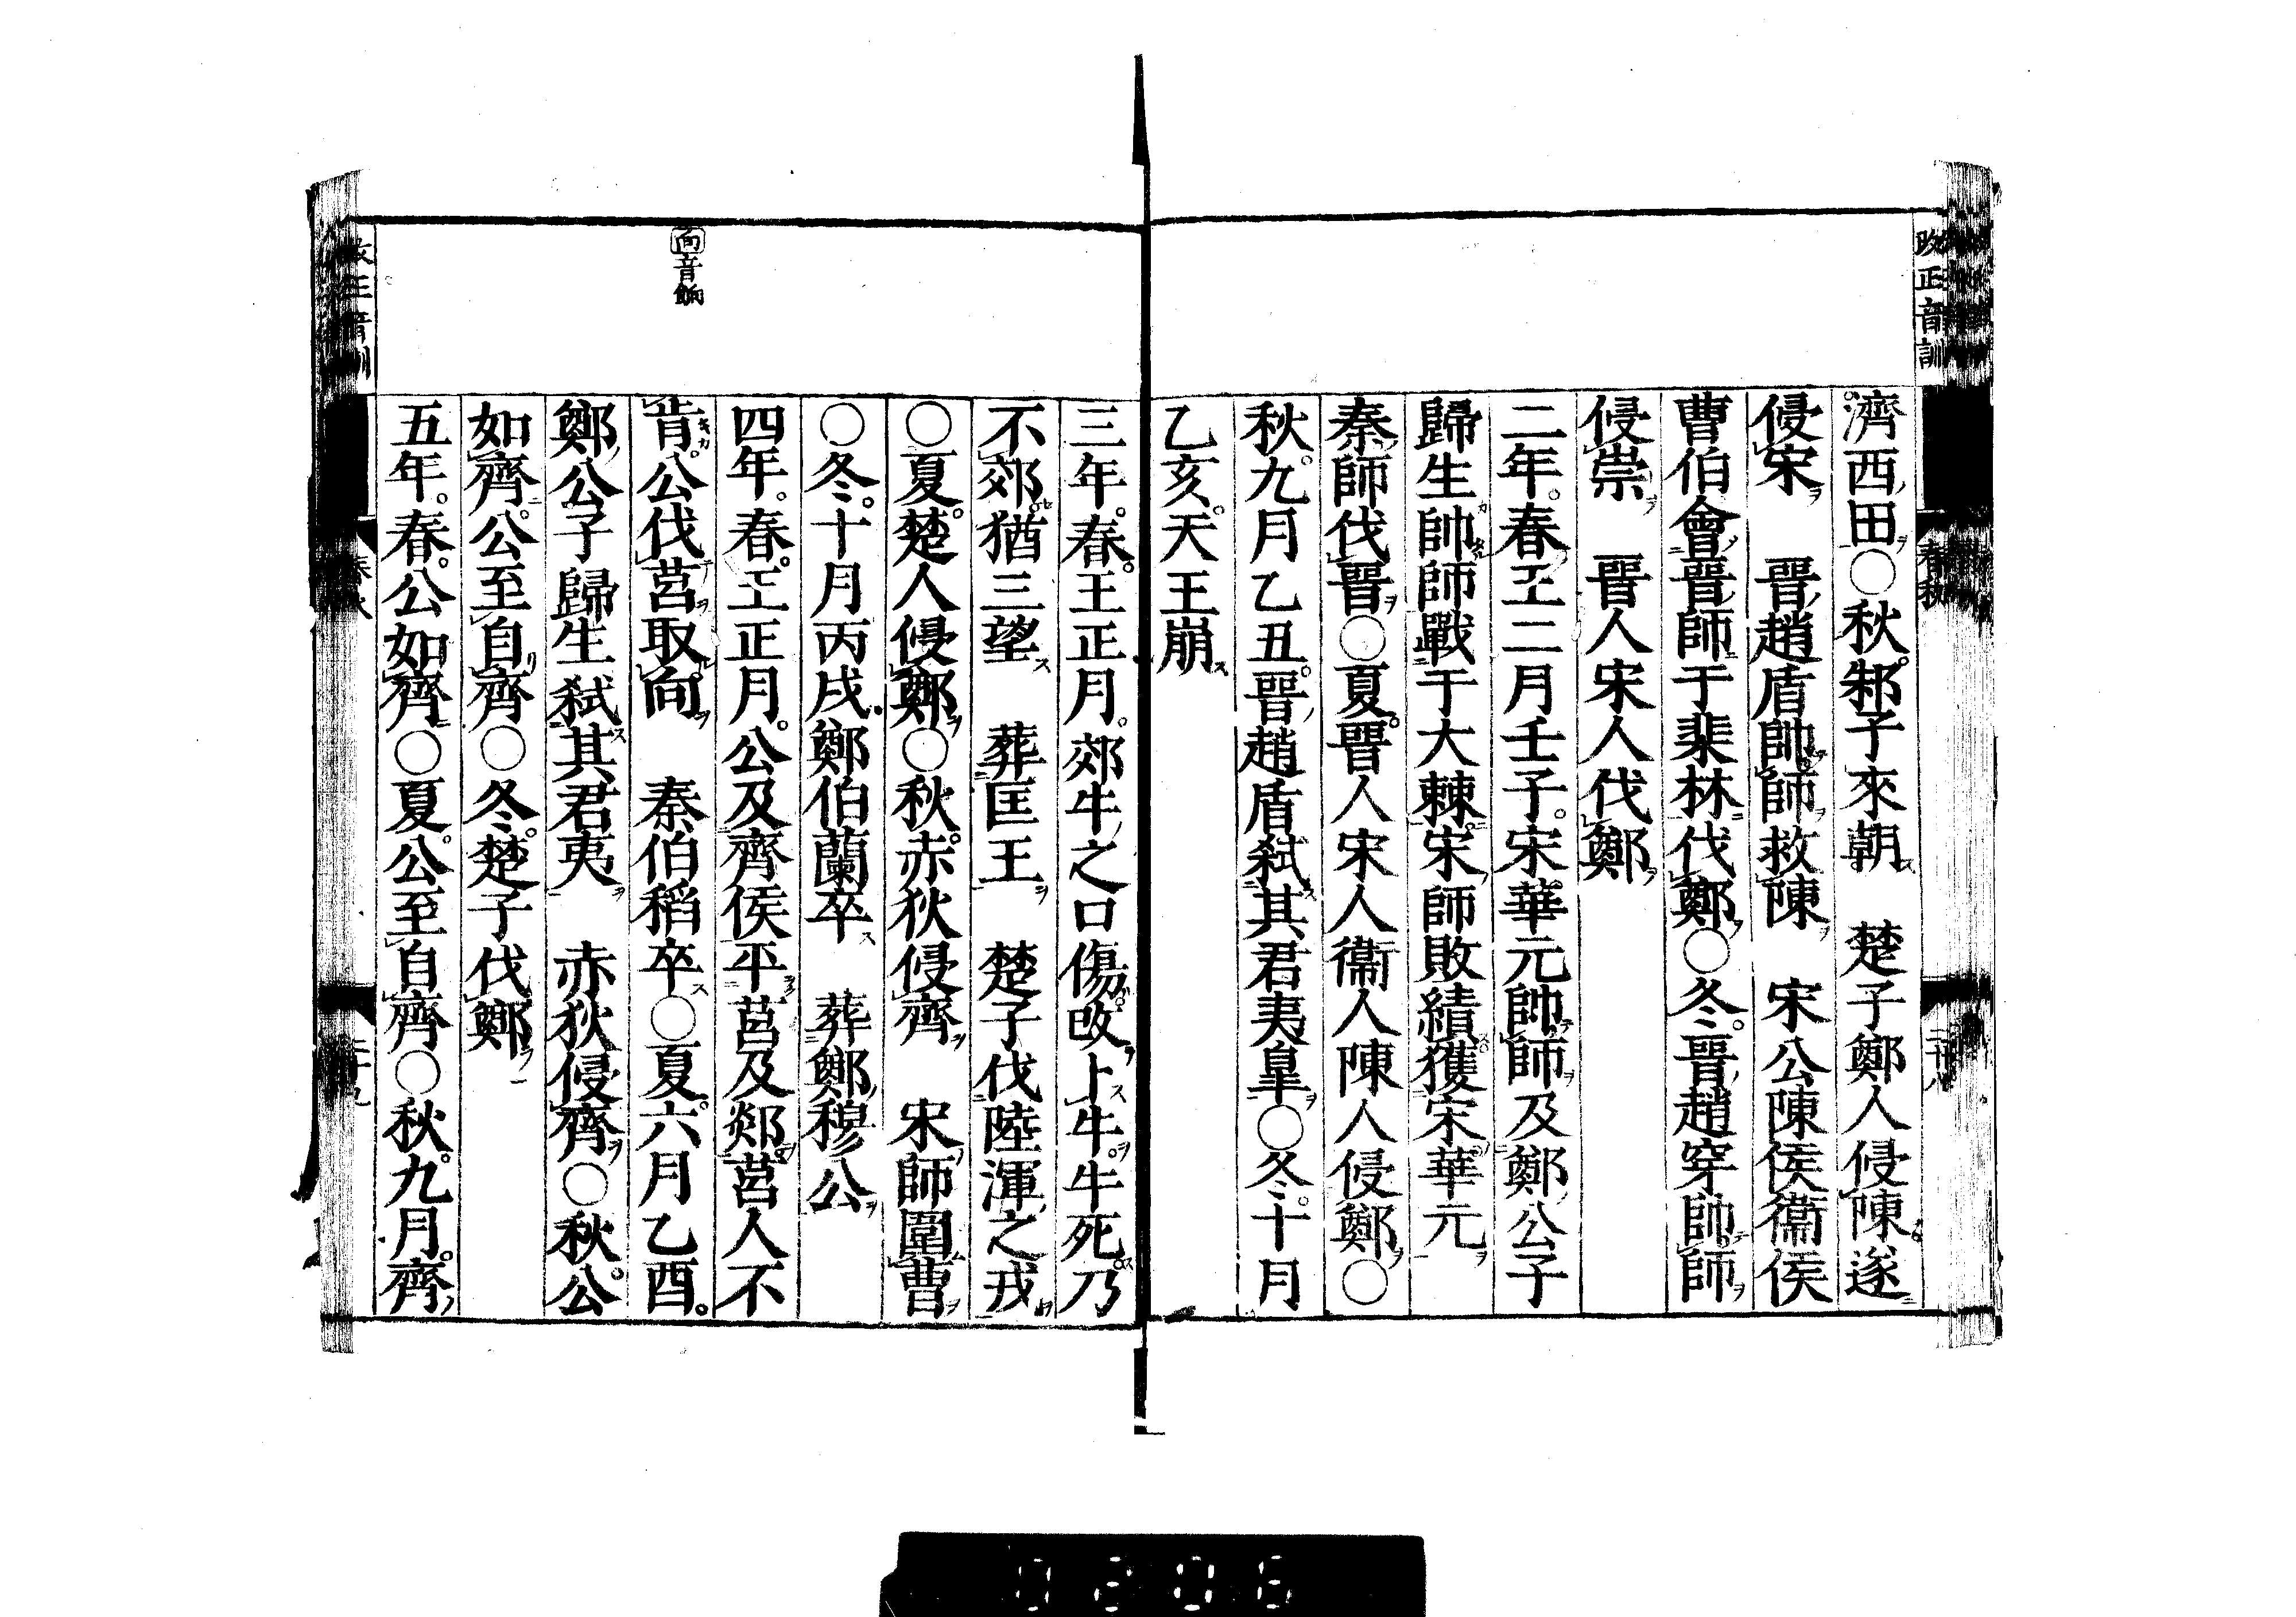 改正音訓
春秋
二十八
濟西田○秋邾子來朝　楚子鄭人侵陳遂
侵宋　晉趙盾帥師救陳　宋公陳侯衞侯
曹伯會晉師于棐林伐鄭○冬晉趙穿帥師
侵崇　晉人宋人伐鄭
二年春王二月壬子宋華元帥師及鄭公子
歸生帥師戰于大棘宋師敗績獲宋華元
秦師伐晉○夏晉人宋人衞人陳人侵鄭○
秋九月乙丑晉趙盾弑其君夷皐○冬十月
乙亥天王崩
三年春王正月郊牛之口傷改卜牛牛死乃
不郊猶三望　葬匡王　楚子伐陸渾之戎
○夏楚人侵鄭○秋赤狄侵齊　宋師圍曹
○冬十月丙戌鄭伯蘭卒　葬鄭穆公
四年春王正月公及齊侯平莒及郯莒人不
向音餉
肯公伐莒取向　秦伯稻卒○夏六月乙酉
鄭公子歸生弑其君夷　赤狄侵齊○秋公
如齊公至自齊○冬楚子伐鄭
五年春公如齊○夏公至自齊○秋九月齊
改正音訓
春秋
二十九
0206